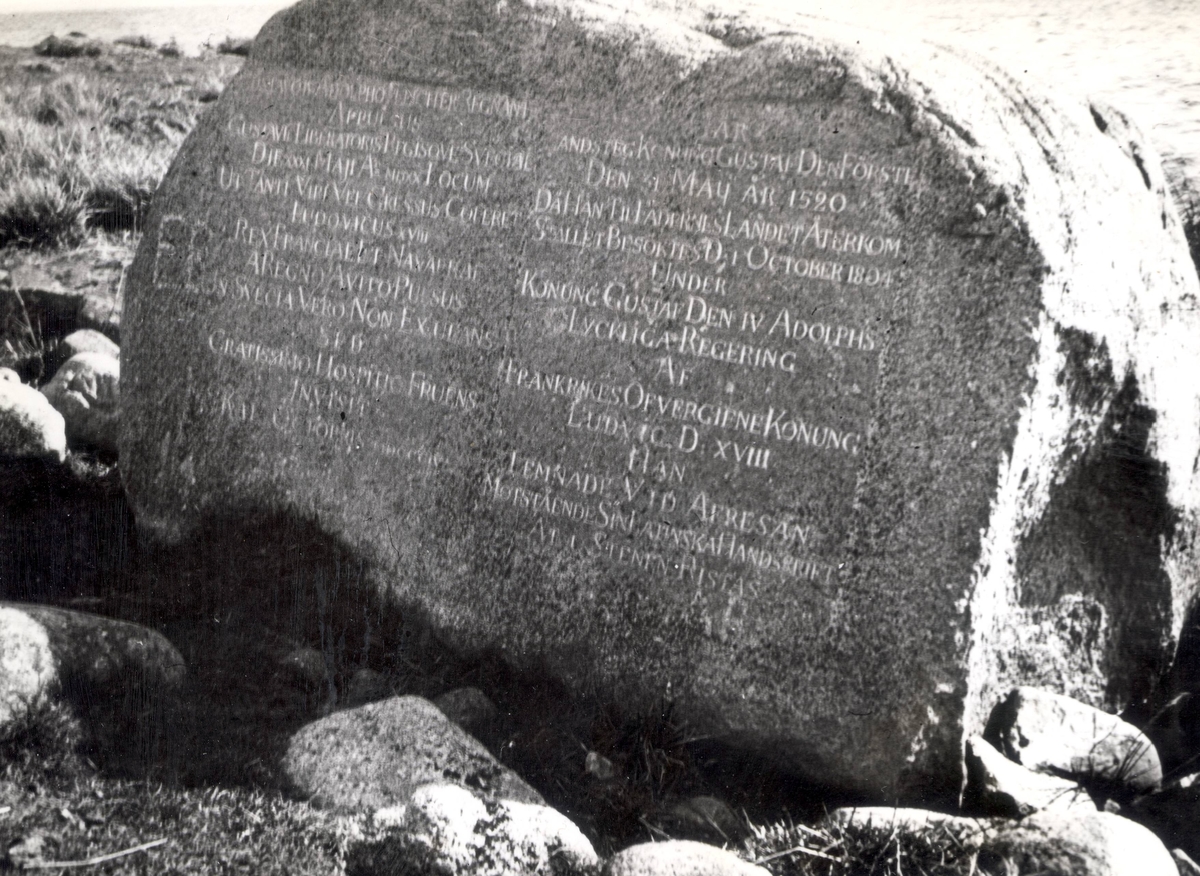 GUSTAVE LIBERATORIS
DIE MAJI LOCUM
UT ANTE VIDI NEC GRESSUS
LUDOVICUS XVIII
REX FRANCIAE ET NAVARRAE
A REGNO AVITO PULSUS
SVECIA VERO NON EXULANS
SED
GRATISSIMO HOSPITIO FRUENS
INVISIT
HÄR
LANDSTEG KONUNG GUSTAF DEN FÖRSTE
DEN MAIJ ÅR 1520
DÅ HAN TIL FÄDERNES LANDET ÅTERKOM
STÄLLET BESÖKTES D. 1 OCTOBER 1804
UNDER
KONUNG GUSTAF DEN IV ADOLPHS
LYCKLIGA REGERING
AF
FRANKRIKES OFVERGIFNE KONUNG
LUDVIC D. XVIII
HAN
LEMNADE VID AFRESAN
MOTSTÅENDE SIN LATINSKA HANDSKRIFT
AT I STENEN RISTAS